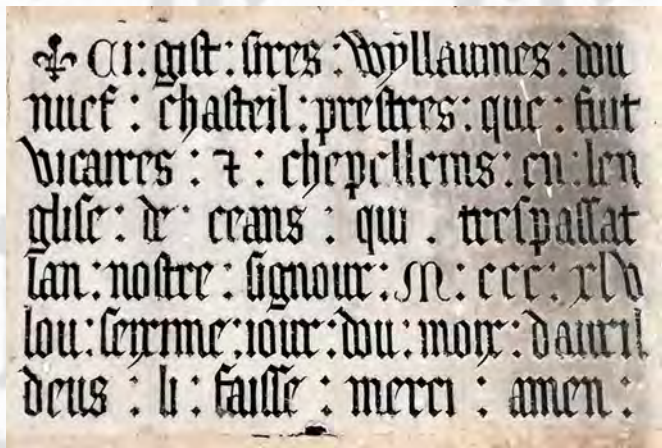 ⚜ CI : gist : sires : Wyllaumes : dou
nuef : chasteil : prestres : que : fuit
vicaires : ⁊ : chepelleins : en : len
glise : de : ceans : qui . trespassat
lan : nostre : signour : M : ccc : xlv
lou : seixime : iour : dou : moix : dauril
deus : li : faisse : merci : amen :